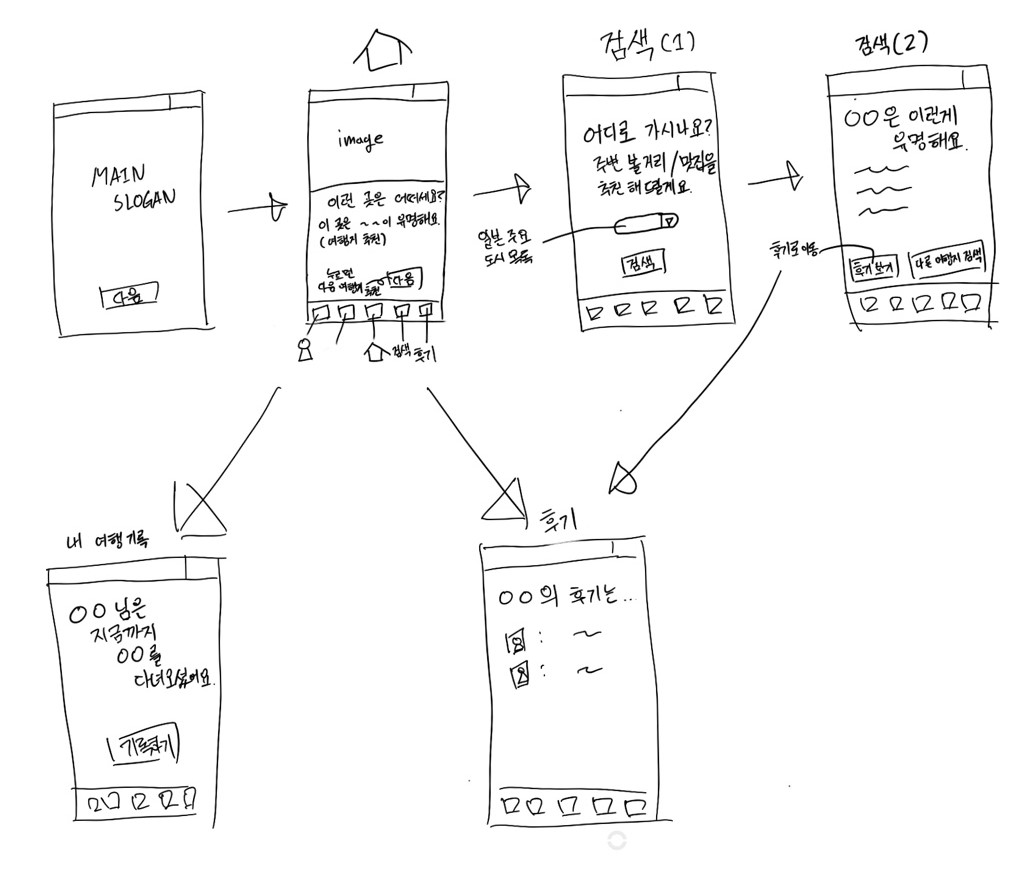 MAIN
SLOGAN
다음
image
이런 곳은 어떠세요?
이 곳은 ~~이 유명해요.
(여행지 추천)
누르면
다음 여행지 추천
다음
검색
후기
검색(1)
어디로 가시나요?
주변 볼거리/맛집을
추천해드릴게요.
일본 주요
도시 목록
검색
검색(2)
○○은 이런게
유명해요.
후기로 이동
후기 보기
다른 여행지 검색
내 여행기록
○○ 님은
지금까지
○○를
다녀오셨어요.
기록하기
후기
○○의 후기는...
: ~
: ~